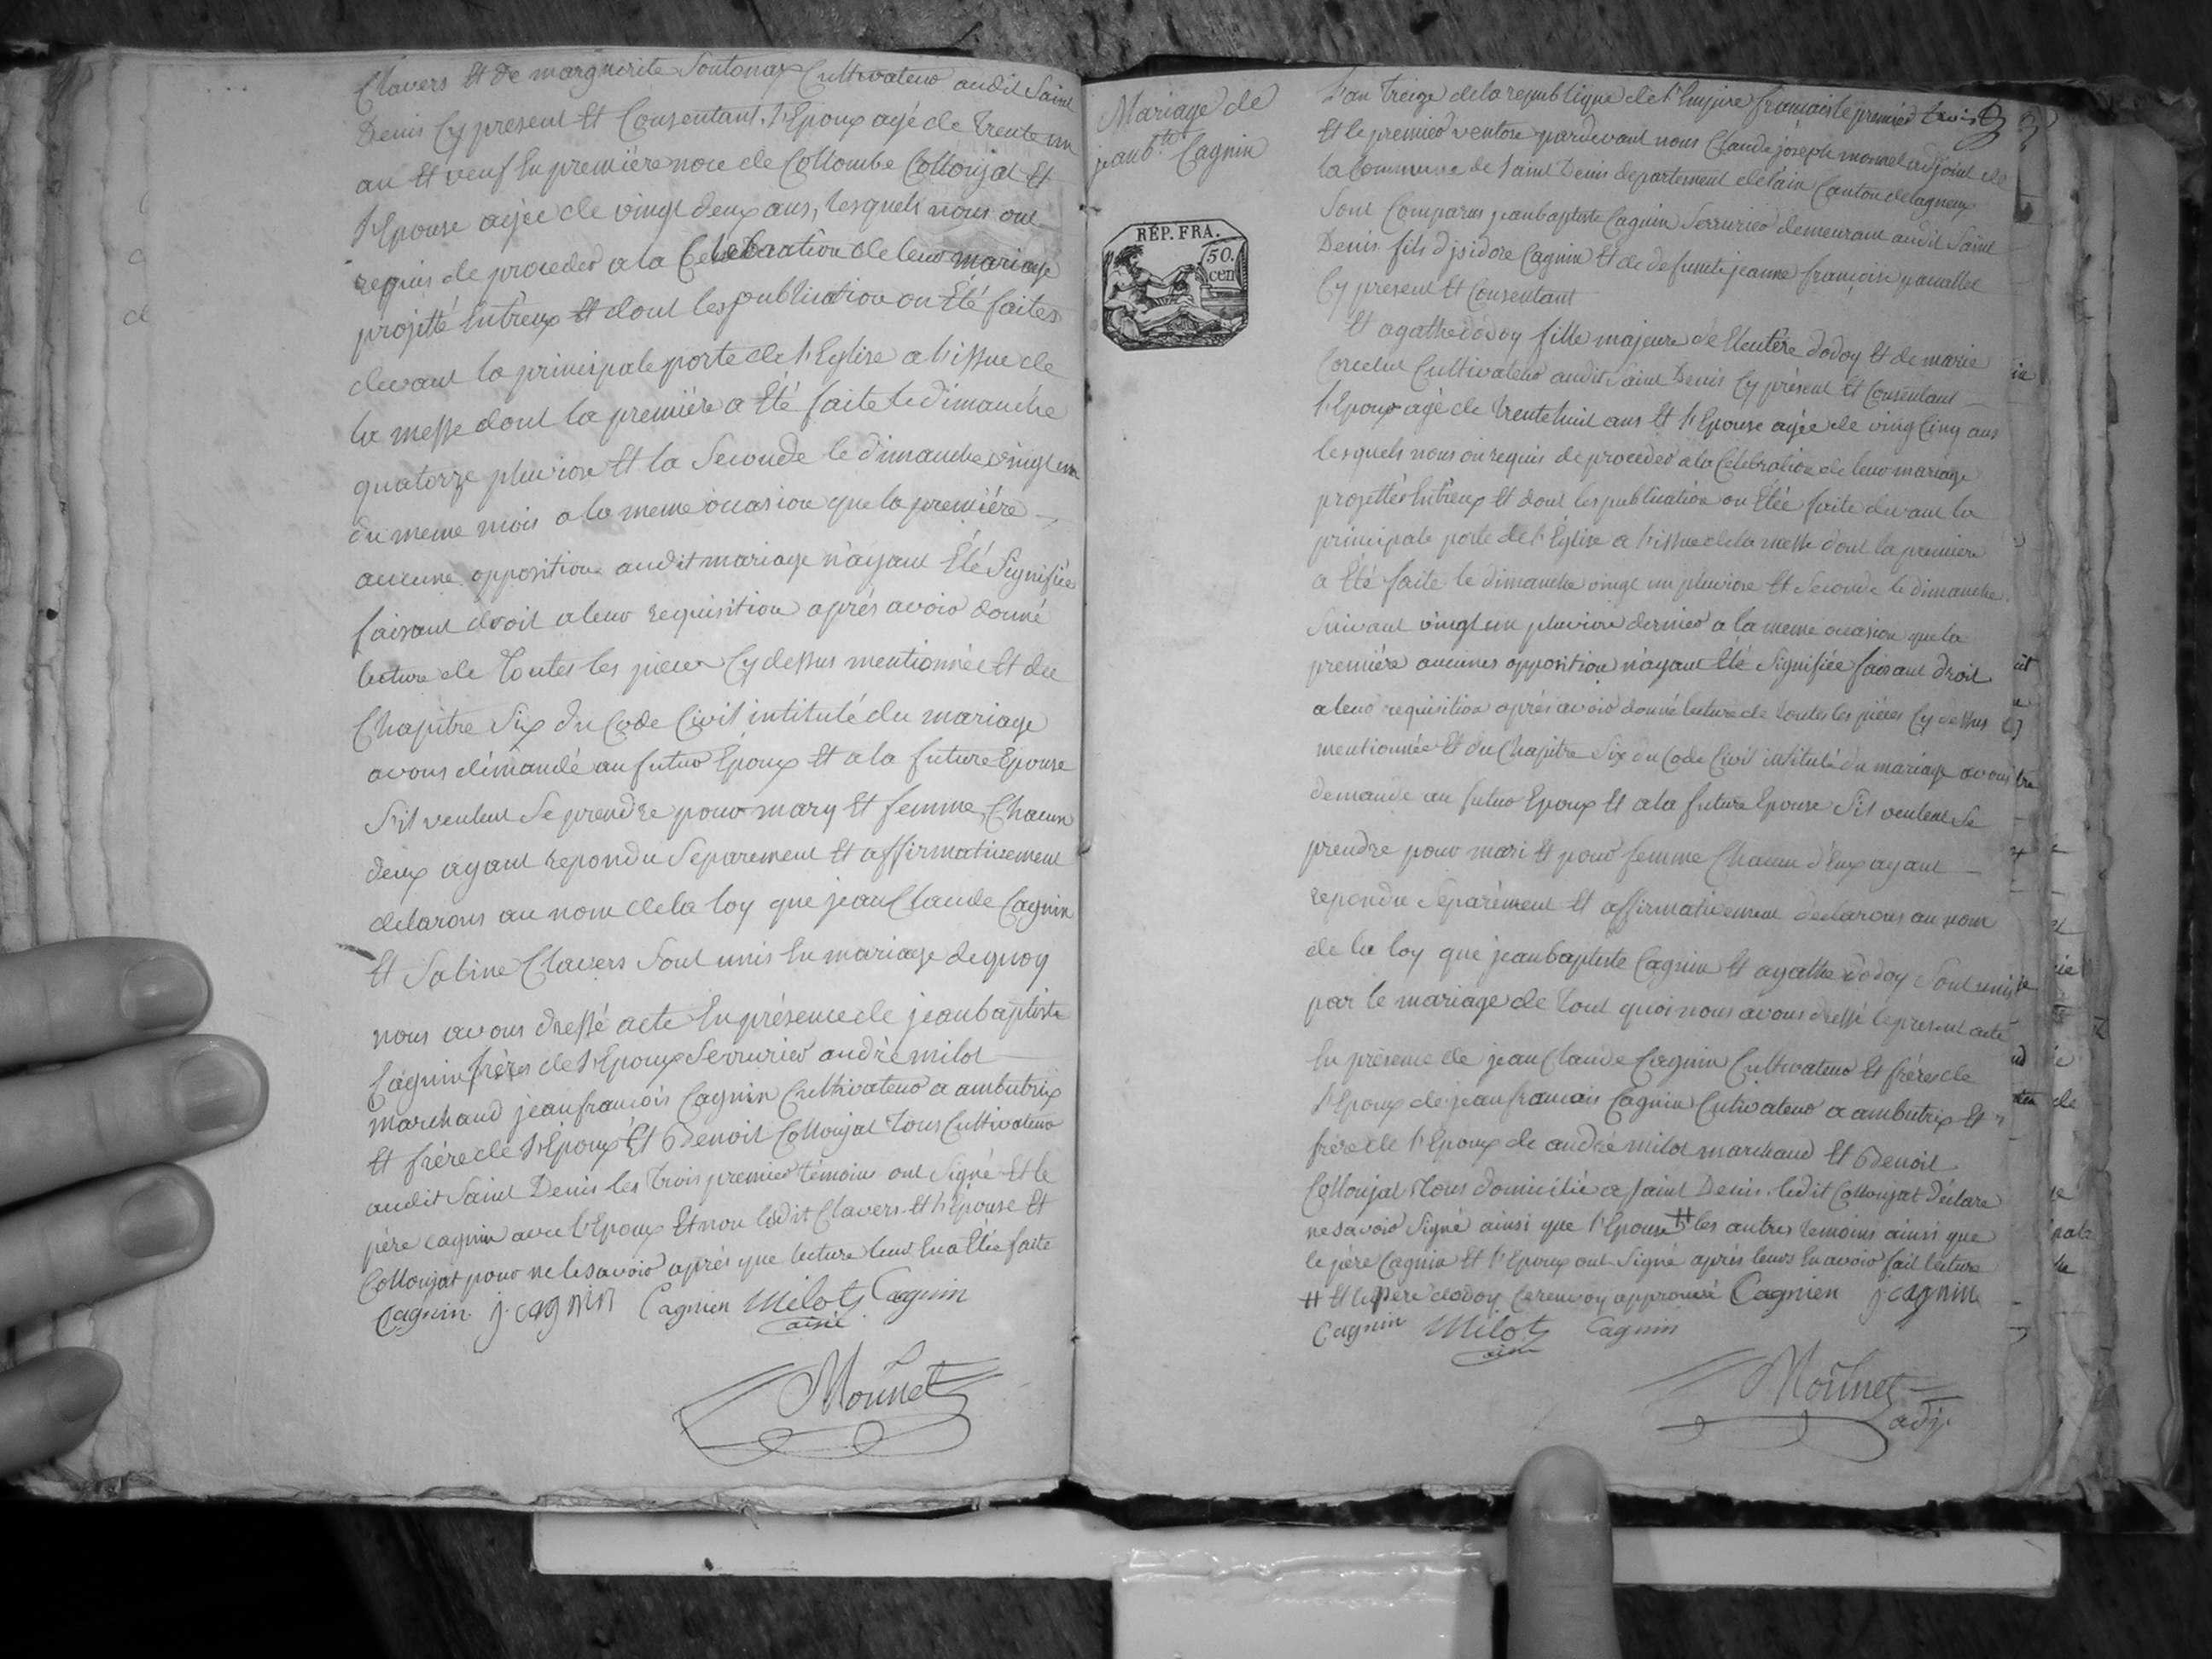 Clavers Et de marguerite Sontonax Cultivateur audit Saint
Denis Cy present Et Consentant. l'Epoux agé de Trente un
an Et veuf En première noce de Collombe Collonjat Et
l'Epouse agée de vingt deux ans, lesquels nous ont
requis de proceder a la Celebration de leur mariage
projetté Entreux Et dont les publication on Eté faites
devant la principale porte de l'Eglise a l'issue de
la messe dont la première a Eté faite le dimanche
quatorze pluviose Et la Seconde le dimanche vingt un
du meme mois a la meme occasion que la première
aucune opposition audit mariage n'ayant Eté Signifiée
faisant droit a leur requisition après avoir donné
lecture de Toutes les pieces Cy dessus mentionnée Et du
Chapitre Six du Code Civil intitulé du mariage
avons démandé au futur Epoux Et a la future Epouse
S'il veulent Se prendre pour mary Et femme, Chacun
deux ayant repondu Separement Et affirmativement
delarons au nom de la loy que jean Claude Cagnin
Et Sabine Clavers Sont unis En mariage de quoy
nous avons dressé acte En présence de jean baptiste
Cagnin frères de l'Epoux Serrurier andré milot
marchand jean francois Cagnin Cultivateur a ambutrix
Et frère de l'Epoux Et Benoit Collonjat Tous Cultivateur
audit Saint Denis les Trois premier témoins ont Signé Et le
père cagnin avec l'Epoux Et non ledit Clavers Et l'Epouse Et
Collonjat pour ne le savoir après que lecture leur En a Etée faite
Cagnin j. cagnin Cagnien Milot Cagnin
ainé
Monnet
Mariage de
jean b.te Cagnin
RÉP. FRA.
50.
cen
L'an Treize de la republique de l'Empire francais le premier
Et le premier ventose pardevant nous Claude joseph monnet adjoint de
la Commune de Saint Denis departement de lain Canton de lagnieux
Sont Comparus jean baptiste Cagnin Serrurier demeurant audit Saint
Denis fils d'isidore Cagnin Et de defunte jeanne françoise
Cy present Et Consentant
Et agathe dodoy fille majeure de Eleutère dodoy Et de marie
Cultivateur audit Saint Denis Cy présent Et Consentant
l'Epoux agé de Trente huit ans Et l'Epouse agée de ving Cinq ans
lesquels nous on requis de proceder a la Celebration de leur mariage
projettés Entreux Et dont les publication on Etée faite devant la
principale porte de l'Eglise a l'issue de la messe dont la premiere
a Eté faite le dimanche vingt un pluviose Et Seconde le dimanche
Suivant vingt un pluviose dernier a la meme occasion que la
première aucunes opposition n'ayant Eté Signifiée faisant droit
a leur requisition après avoir donné lecture de toutes les pièces Cy dessus
mentionnée Et du Chapitre Six du Code Civil intitulé du mariage avons
demandé au futur Epoux Et a la future Epouse S'il veulent Se
prendre pour mari Et pour femme Chacun d'Eux ayant
repondu Separément Et affirmativement declarons au nom
de la loy que jean baptiste Cagnin Et agathe dodoy Sont unis
par le mariage de Tout quoi nous avons dressé le present acte
En présence de jean Claude Cagnin Cultivateur Et frères de
l'Epoux de jean francais Cagnin Cultivateur a ambutrix Et
frère de l'Epoux de andré milot marchand Et Benoit
Collonjat Tous domicilié a Saint Denis. ledit Collonjat déclare
ne savoir Signé ainsi que l'Epouse # les autres temoins ainsi que
le père Cagnin Et l'Epoux ont Signé après leurs En avoir fait lecture
# Et le père dodoy Ce renvoy approuvé Cagnien j. cagnin
Cagnin Milot Cagnin
ainé
Monnet
adj.